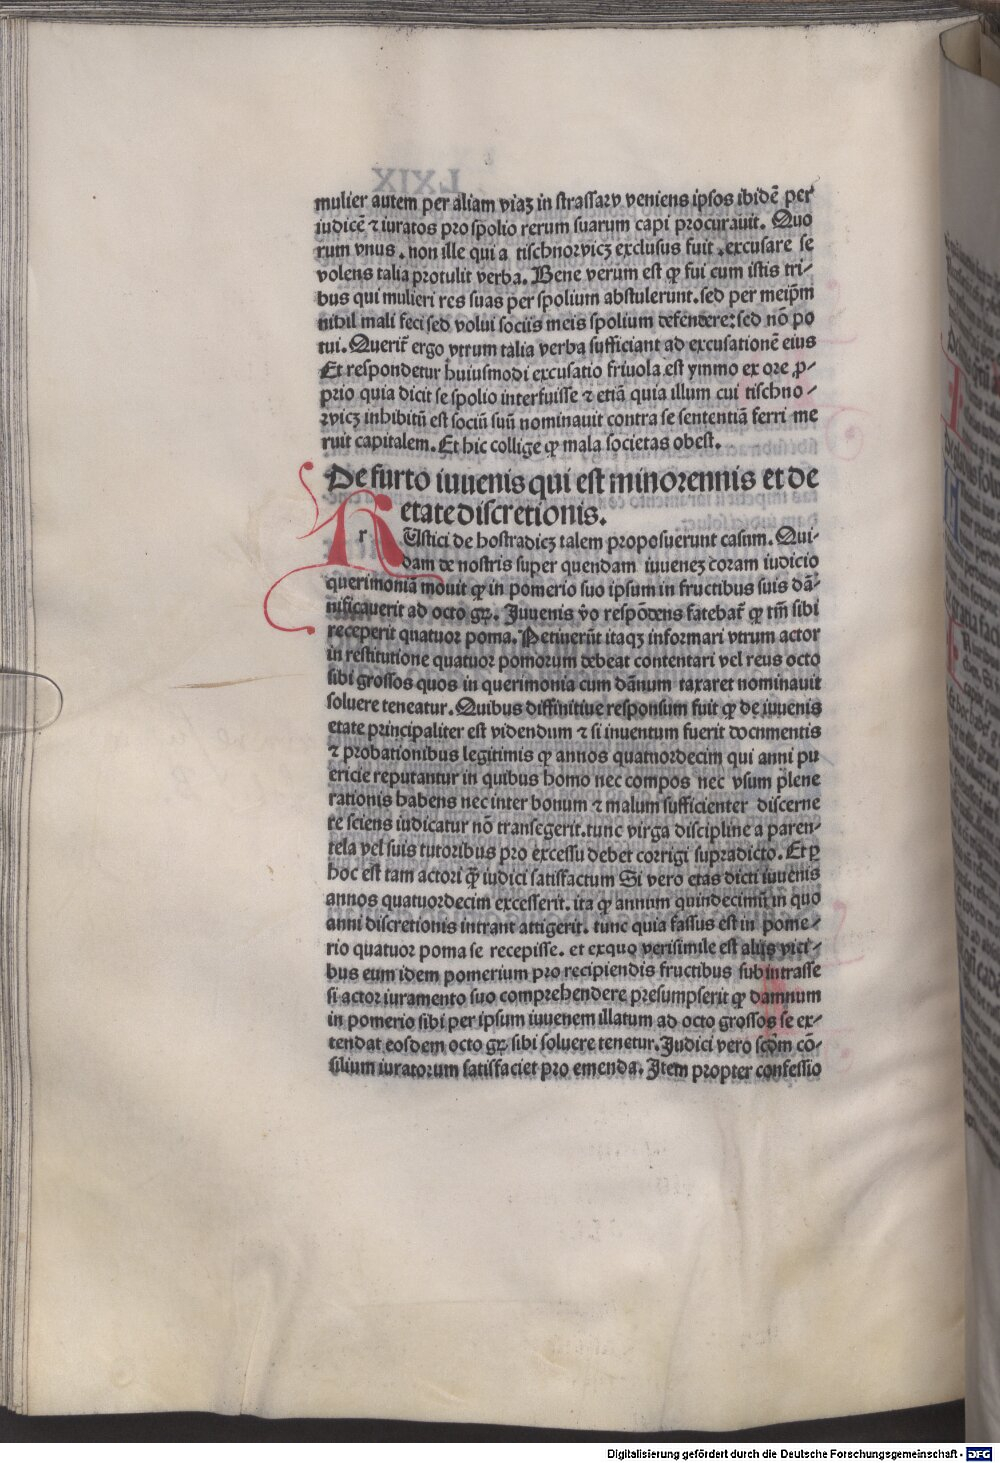 mulier autem per aliam viaꝫ in strassarv veniens ipsos ibidē per
iudicē ⁊ iuratos pro spolio rerum suarum capi procurauit. Quo
rum vnus . non ille qui a tischnorvicꝫ exclusus fuit . excusare se
volens talia protulit verba. Bene verum est ꝙ fui cum istis tri⸗
bus qui mulieri res suas per spolium abstulerunt. sed per meip̄m
nihil mali feci sed volui sociis meis spolium defendere: sed nō po
tui. Querit̄ ergo vtrum talia verba sufficiant ad excusationē eius
Et respondetur huiusmodi excusatio friuola est ymmo ex ore ꝓ⸗
prio quia dicit se spolio interfuisse ⁊ etiā quia illum cui tischno⸗
rvicꝫ inhibitū est sociū suū nominauit contra se sententiā ferri me
ruit capitalem. Et hic collige ꝙ mala societas obest.
De furto iuuenis qui est minorennis et de
etate discretionis.
RUstici de hostradicꝫ talem proposuerunt casum. Qui⸗
dam de nostris super quendam iuueneꝫ coram iudicio
querimoniā mouit ꝙ in pomerio suo ipsum in fructibus suis dā⸗
nificauerit ad octo gꝝ. Iuuenis v̄o respōdens fatebat̄ ꝙ tm̄ sibi
receperit quatuor poma. Petiuerūt itaqꝫ informari vtrum actor
in restitutione quatuor pomorum debeat contentari vel reus octo
sibi grossos quos in querimonia cum dānum taxaret nominauit
soluere teneatur. Quibus diffinitiue responsum fuit ꝙ de iuuenis
etate principaliter est videndum ⁊ si inuentum fuerit documentis
⁊ probationibus legitimis ꝙ annos quatuordecim qui anni pu
ericie reputantur in quibus homo nec compos nec vsum plene
rationis habens nec inter bonum ⁊ malum sufficienter discerne
re sciens iudicatur nō transegerit. tunc virga discipline a paren⸗
tela vel suis tutoribus pro excessu debet corrigi supradicto. Et ꝑ
hoc est tam actori ꝙ̄ iudici satisfactum Si vero etas dicti iuuenis
annos quatuordecim excesserit. ita ꝙ annum quindecimū in quo
anni discretionis intrant attigerit. tunc quia fassus est in pome⸗
rio quatuor poma se recepisse. et exquo verisimile est aliis vici⸗
bus eum idem pomerium pro recipiendis fructibus subintrasse
si actor iuramento suo comprehendere presumpserit ꝙ damnum
in pomerio sibi per ipsum iuuenem illatum ad octo grossos se ex⸗
tendat eosdem octo gꝝ sibi soluere tenetur. Iudici vero scd̄m cō⸗
silium iuratorum satisfaciet pro emenda. Item propter confessio
Digitalisierung gefördert durch die Deutsche Forschungsgemeinschaft - DFG